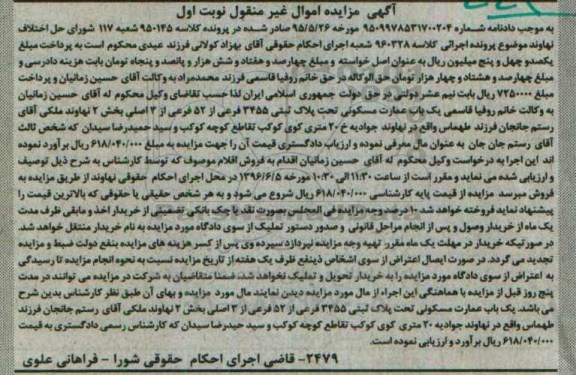 آگهی مزایده اموال غیر منقول نوبت اول
به موجب دادنامه شماره ۹۵۰۹۹۷۸۵۳۱۷۰۰۲۰۴ مورخه ۹۵/۵/۲۶ صادر شده در پرونده کلاسه ۹۵۰۱۴۵ شعبه ۱۱۷ شورای حل اختلاف
نهاوند موضوع پرونده اجرائی کلاسه ۹۶۰۳۲۸ شعبه اجرای احکام حقوقی آقای بهزاد کولانی فرزند عیدی محکوم است به پرداخت مبلغ
یکصدو چهل و پنج میلیون ریال به عنوان اصل خواسته و مبلغ چهارصد و هفتاد و شش هزار و پانصد و پنجاه تومان بابت هزینه دادرسی و
مبلغ چهارصد و هشتاد و چهار هزار تومان حق الوکاله در حق خانم روفیا قاسمی فرزند محمدمراد به وکالت آقای حسین زمانیان و پرداخت
مبلغ ۷۲۵۰۰۰۰ ریال بابت نیم عشر دولتی در حق دولت جمهوری اسلامی ایران لذا حسب تقاضای وکیل محکوم له آقای حسین زمانیان
به وکالت خانم روفیا قاسمی یک باب عمارت مسکونی تحت پلاک ثبتی ۳۴۵۵ فرعی از ۵۲ فرعی از ۳ اصلی بخش ۲ نهاوند ملکی آقای
رستم جانجان فرزند طهماس واقع در نهاوند جوادیه خ ۲۰ متری کوی کوکب تقاطع کوچه کوکب و سید حمیدرضا سیدان که شخص ثالث
آقای رستم جان جان به عنوان مال معرفی نموده و ارزیاب دادگستری قیمت آن را جهت مزایده به مبلغ ۶۱۸/۰۴۰/۰۰۰ ریال برآورد نموده
اند این اجرا به درخواست وکیل محکوم له آقای حسین زمانیان اقدام به فروش اقلام موصوف که توسط کارشناس به شرح ذیل توصیف
و ارزیابی شده می نماید و مقرر است از ساعت ۱۱:۳۰ الی ۱۰:۳۰ مورخه ۱۳۹۶/۶/۵ در محل اجرای احکام حقوقی نهاوند از طریق مزایده به
فروش میرسد مزایده از قیمت پایه کارشناسی ۶۱۸/۰۴۰/۰۰۰ ریال شروع می شود و به هر شخص حقیقی یا حقوقی که بالاترین قیمت را
پیشنهاد نماید فروخته خواهد شد ۱۰ درصد وجه مزایده فی المجلس بصورت نقد یا چک بانکی تضمینی از خریدار اخذ و مابقی ظرف مدت
یک ماه از خریدار وصول و پس از انجام مراحل قانونی و صدور دستور تملیک از سوی دادگاه مورد مزایده به نام خریدار منتقل خواهد شد.
در صورتیکه خریدار در مهلت یک ماه مقرر تهیه وجه مزایده نپردازد سپرده وی پس از کسر هزینه های مزایده بنفع دولت ضبط و مزایده
تجدید می گردد. در صورت ایصال اعتراض از سوی اشخاص ذینفع ظرف یک هفته از تاریخ مزایده نسبت به نحوه انجام مزایده تا رسیدگی
به اعتراض از سوی دادگاه مورد مزایده را به خریدار تحویل و تملیک نخواهد شد، ضمنا متقاضیان به شرکت در مزایده می توانند در مدت
پنج روز قبل از مزایده با هماهنگی این اجراء از مال مورد مزایده دیدن نمایند مال مورد مزایده و بهای آن طبق نظر کارشناس بدین شرح
می باشد. یک باب عمارت مسکونی تحت پلاک ثبتی ۳۴۵۵ فرعی از ۵۲ فرعی از ۳ اصلی بخش ۲ نهاوند ملکی آقای رستم جانجان فرزند
طهماس واقع در نهاوند جوادیه ۲۰ متری کوی کوکب تقاطع کوچه کوکب و سید حیدرضا سیدان که کارشناس رسمی دادگستری به قیمت
۶۱۸/۰۴۰/۰۰۰ ریال برآورد و ارزیابی نموده است.
۲۴۷۹- قاضی اجرای احکام حقوقی شورا - فراهانی علوی